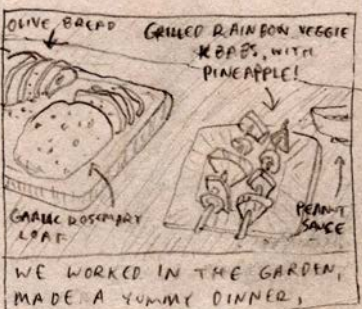 OLIVE BREAD
GRILLED RAINBOW VEGGIE
KBABS, WITH
PINEAPPLE!
GARLIC ROSEMARY
LOAF
PEANUT
SAUCE
WE WORKED IN THE GARDEN,
MADE A YUMMY DINNER,